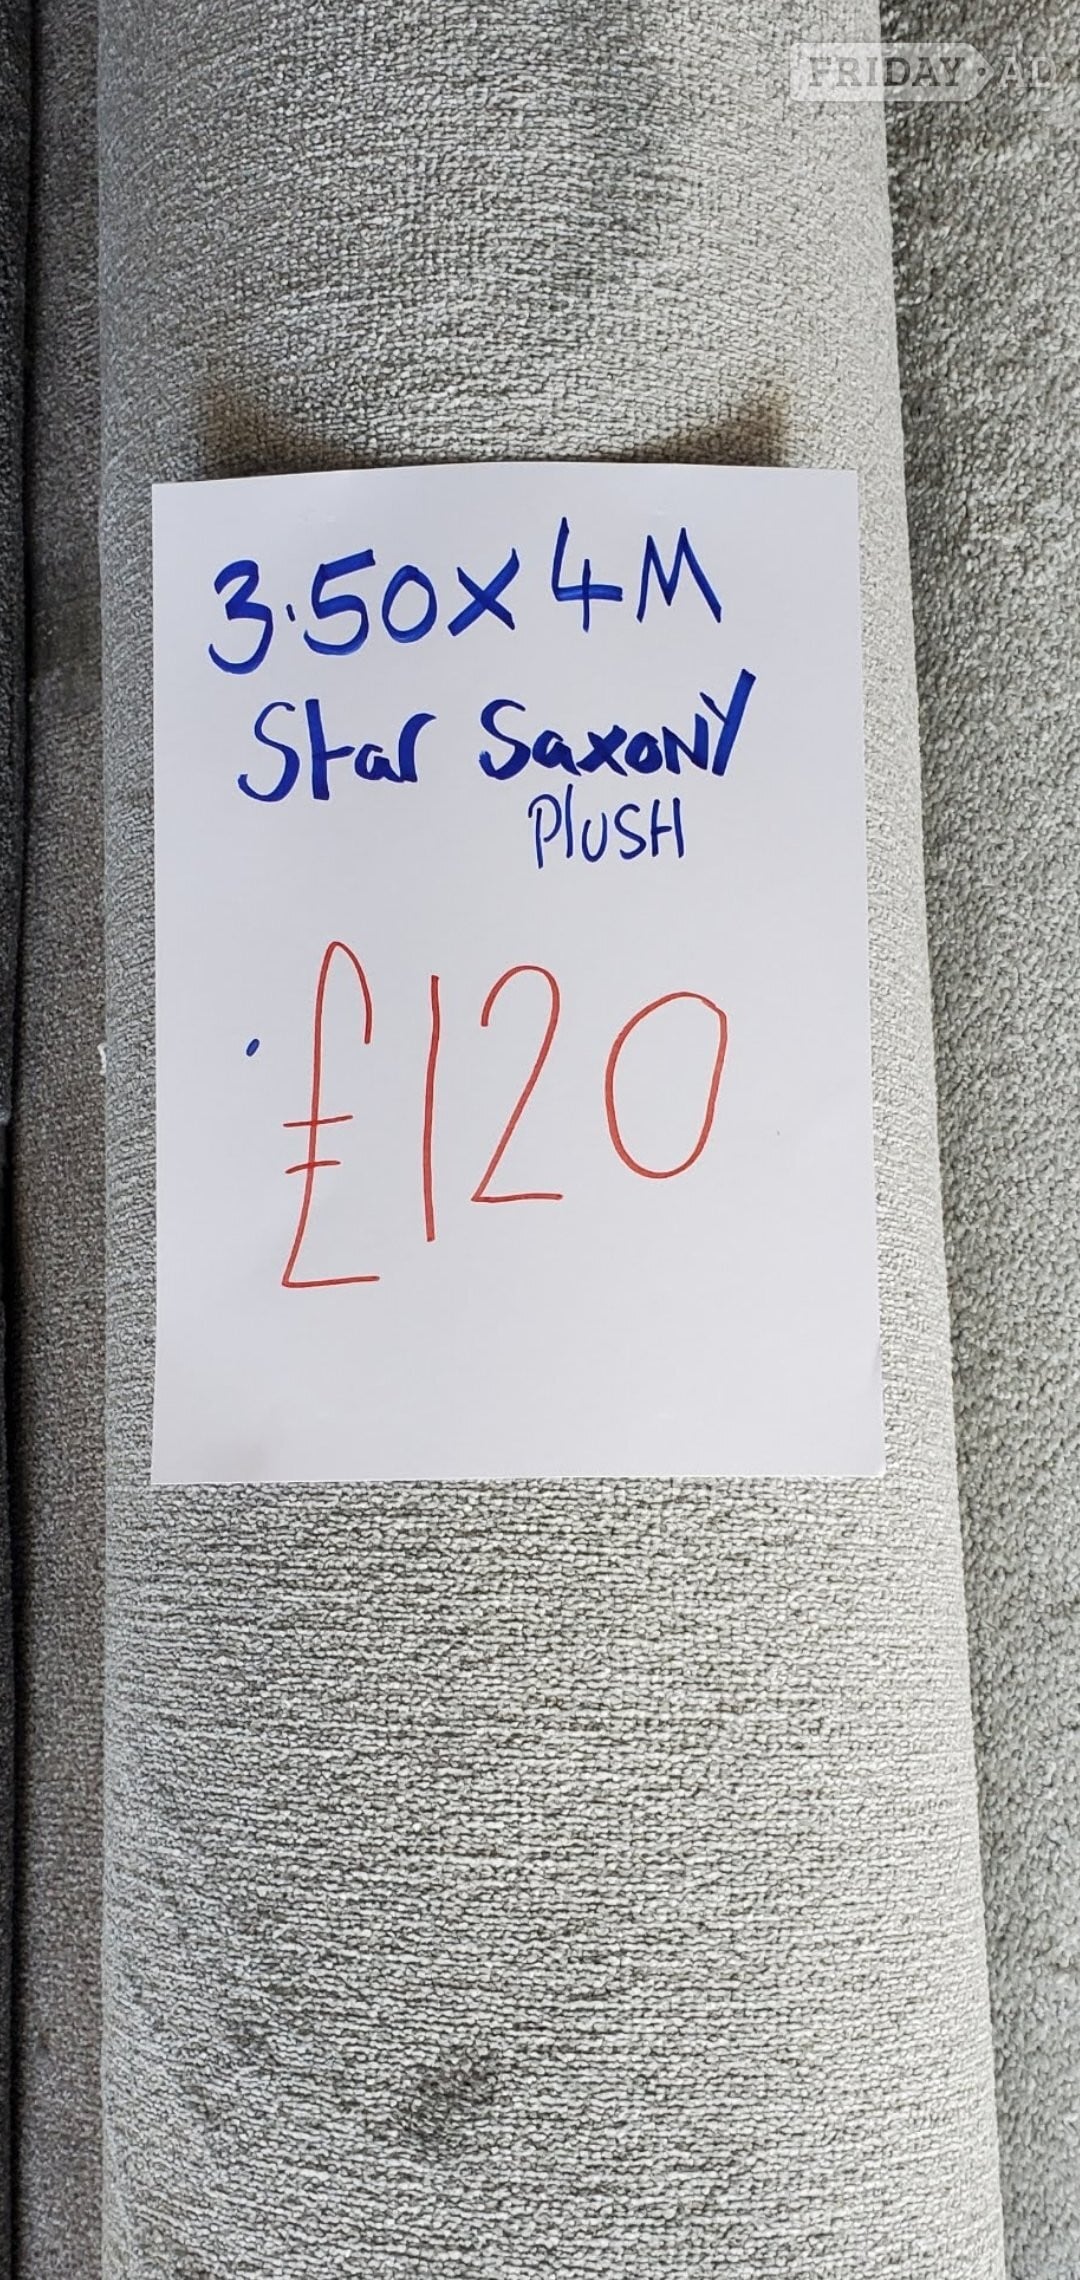 FRIDAY-AD
3.50x4M
Star Saxony
Plush
£120